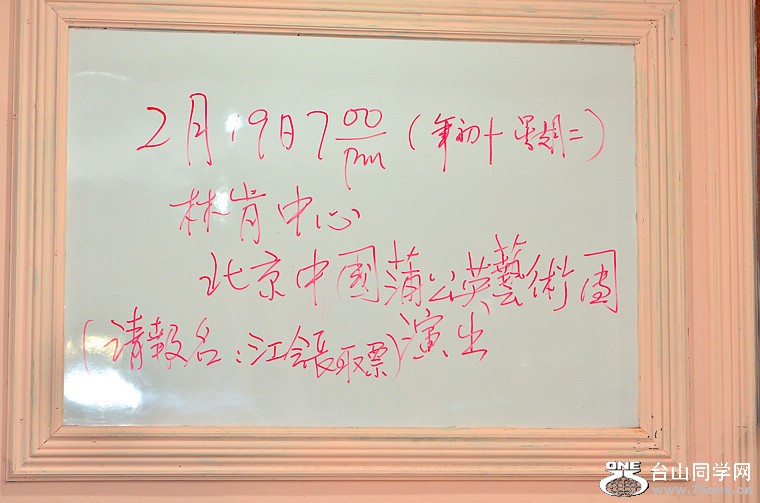 2月19日7 00/pm (年初十 星期二)
林肯中心
北京中國蒲公英藝術团
(请報名:江会長取票)演出
ONE
台山同学网
www.tsong.cn